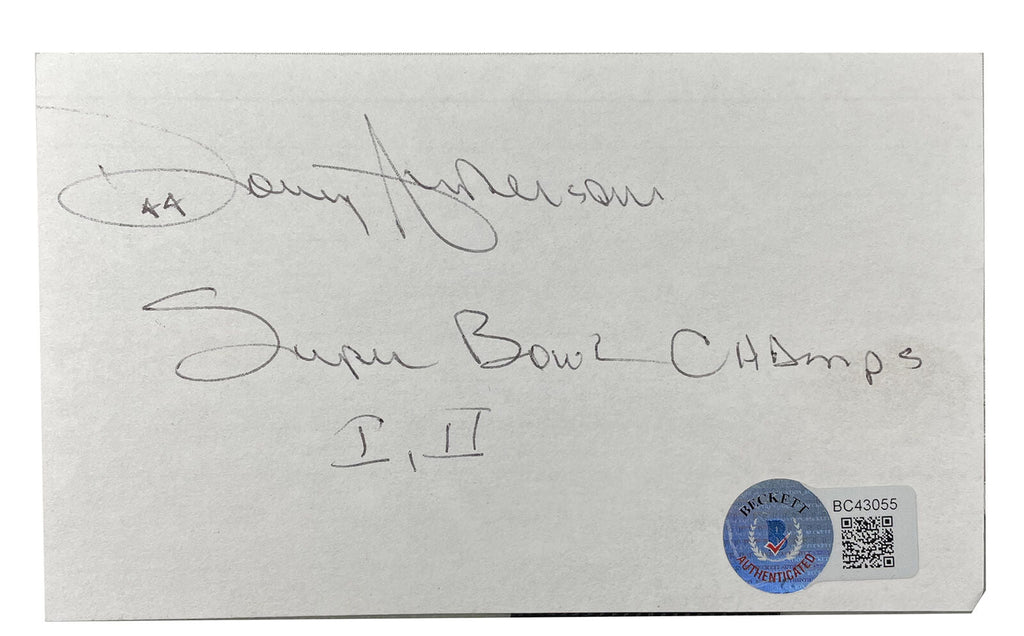 Donny Anderson
44
Super Bowl CHAmps
I, II
BECKETT
AUTHENTICATED
BC43055